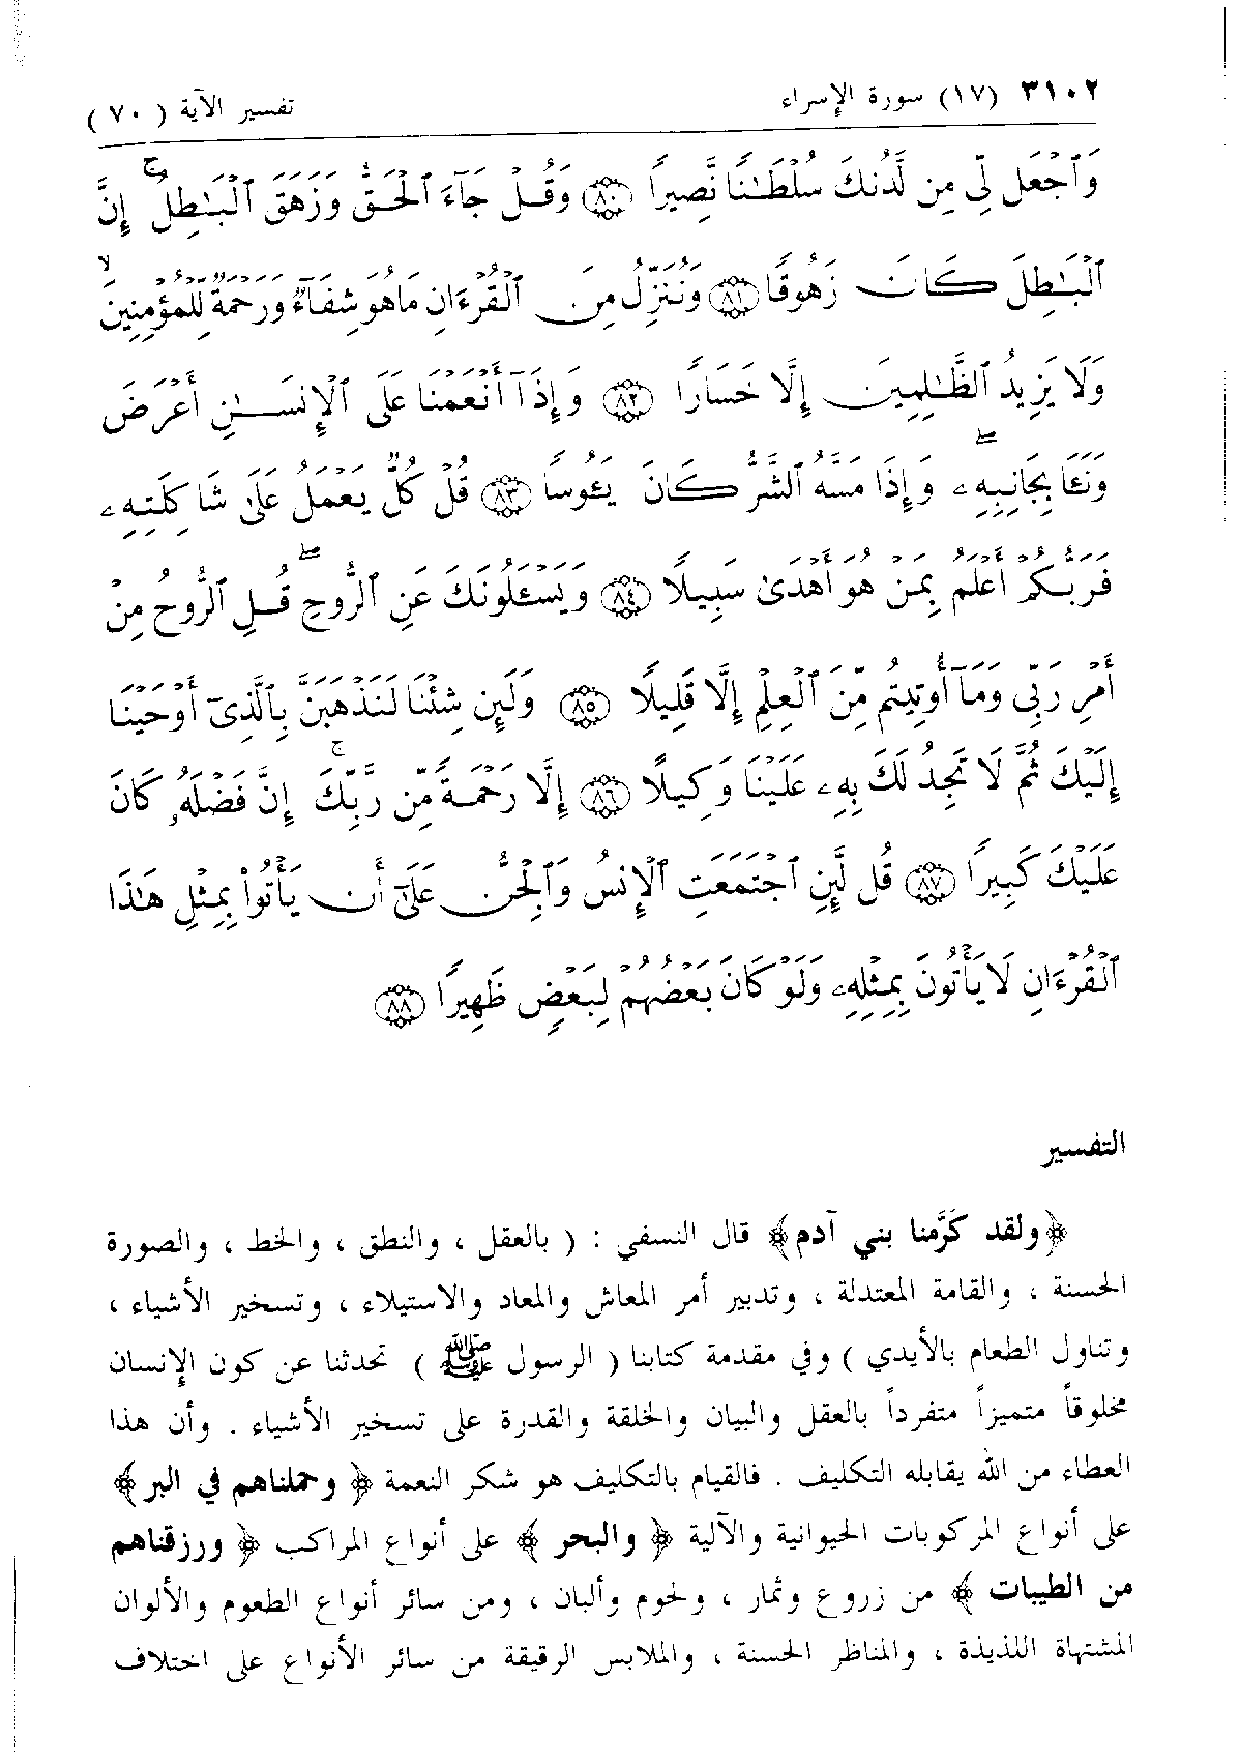 ٣١٠٢ (١٧) سورة الإسراء تفسير الآية ( ٧٠ )
وَٱجْعَل لِّى مِن لَّدُنكَ سُلْطَـٰنًا نَّصِيرًا ﴿٨٠﴾ وَقُلْ جَآءَ ٱلْحَقُّ وَزَهَقَ ٱلْبَـٰطِلُ ۚ إِنَّ
ٱلْبَـٰطِلَ كَانَ زَهُوقًا ﴿٨١﴾ وَنُنَزِّلُ مِنَ ٱلْقُرْءَانِ مَا هُوَ شِفَآءٌ وَرَحْمَةٌ لِّلْمُؤْمِنِينَ ۙ
وَلَا يَزِيدُ ٱلظَّـٰلِمِينَ إِلَّا خَسَارًا ﴿٨٢﴾ وَإِذَآ أَنْعَمْنَا عَلَى ٱلْإِنسَـٰنِ أَعْرَضَ
وَنَـَٔا بِجَانِبِهِۦ ۖ وَإِذَا مَسَّهُ ٱلشَّرُّ كَانَ يَـُٔوسًا ﴿٨٣﴾ قُلْ كُلٌّ يَعْمَلُ عَلَىٰ شَاكِلَتِهِۦ
فَرَبُّكُمْ أَعْلَمُ بِمَنْ هُوَ أَهْدَىٰ سَبِيلًا ﴿٨٤﴾ وَيَسْـَٔلُونَكَ عَنِ ٱلرُّوحِ ۖ قُلِ ٱلرُّوحُ مِنْ
أَمْرِ رَبِّى وَمَآ أُوتِيتُم مِّنَ ٱلْعِلْمِ إِلَّا قَلِيلًا ﴿٨٥﴾ وَلَئِن شِئْنَا لَنَذْهَبَنَّ بِٱلَّذِىٓ أَوْحَيْنَآ
إِلَيْكَ ثُمَّ لَا تَجِدُ لَكَ بِهِۦ عَلَيْنَا وَكِيلًا ﴿٨٦﴾ إِلَّا رَحْمَةً مِّن رَّبِّكَ ۚ إِنَّ فَضْلَهُۥ كَانَ
عَلَيْكَ كَبِيرًا ﴿٨٧﴾ قُل لَّئِنِ ٱجْتَمَعَتِ ٱلْإِنسُ وَٱلْجِنُّ عَلَىٰٓ أَن يَأْتُوا۟ بِمِثْلِ هَـٰذَا
ٱلْقُرْءَانِ لَا يَأْتُونَ بِمِثْلِهِۦ وَلَوْ كَانَ بَعْضُهُمْ لِبَعْضٍ ظَهِيرًا ﴿٨٨﴾
التفسير
﴿ولقد كَرَّمنا بني آدم﴾ قال النسفي : ( بالعقل ، والنطق ، والخط ، والصورة
الحسنة ، والقامة المعتدلة ، وتدبير أمر المعاش والمعاد والاستيلاء ، وتسخير الأشياء ،
وتناول الطعام بالأيدي ) وفي مقدمة كتابنا ( الرسول ﷺ ) تحدثنا عن كون الإنسان
مخلوقاً متميزاً متفرداً بالعقل والبيان والخلقة والقدرة على تسخير الأشياء . وأن هذا
العطاء من الله يقابله التكليف . فالقيام بالتكليف هو شكر النعمة ﴿ وحملناهم في البر﴾
على أنواع المركوبات الحيوانية والآلية ﴿ والبحر ﴾ على أنواع المراكب ﴿ ورزقناهم
من الطيبات ﴾ من زروع وثمار ، ولحوم وألبان ، ومن سائر أنواع الطعوم والألوان
المشتهاة اللذيذة ، والمناظر الحسنة ، والملابس الرقيقة من سائر الأنواع على اختلاف